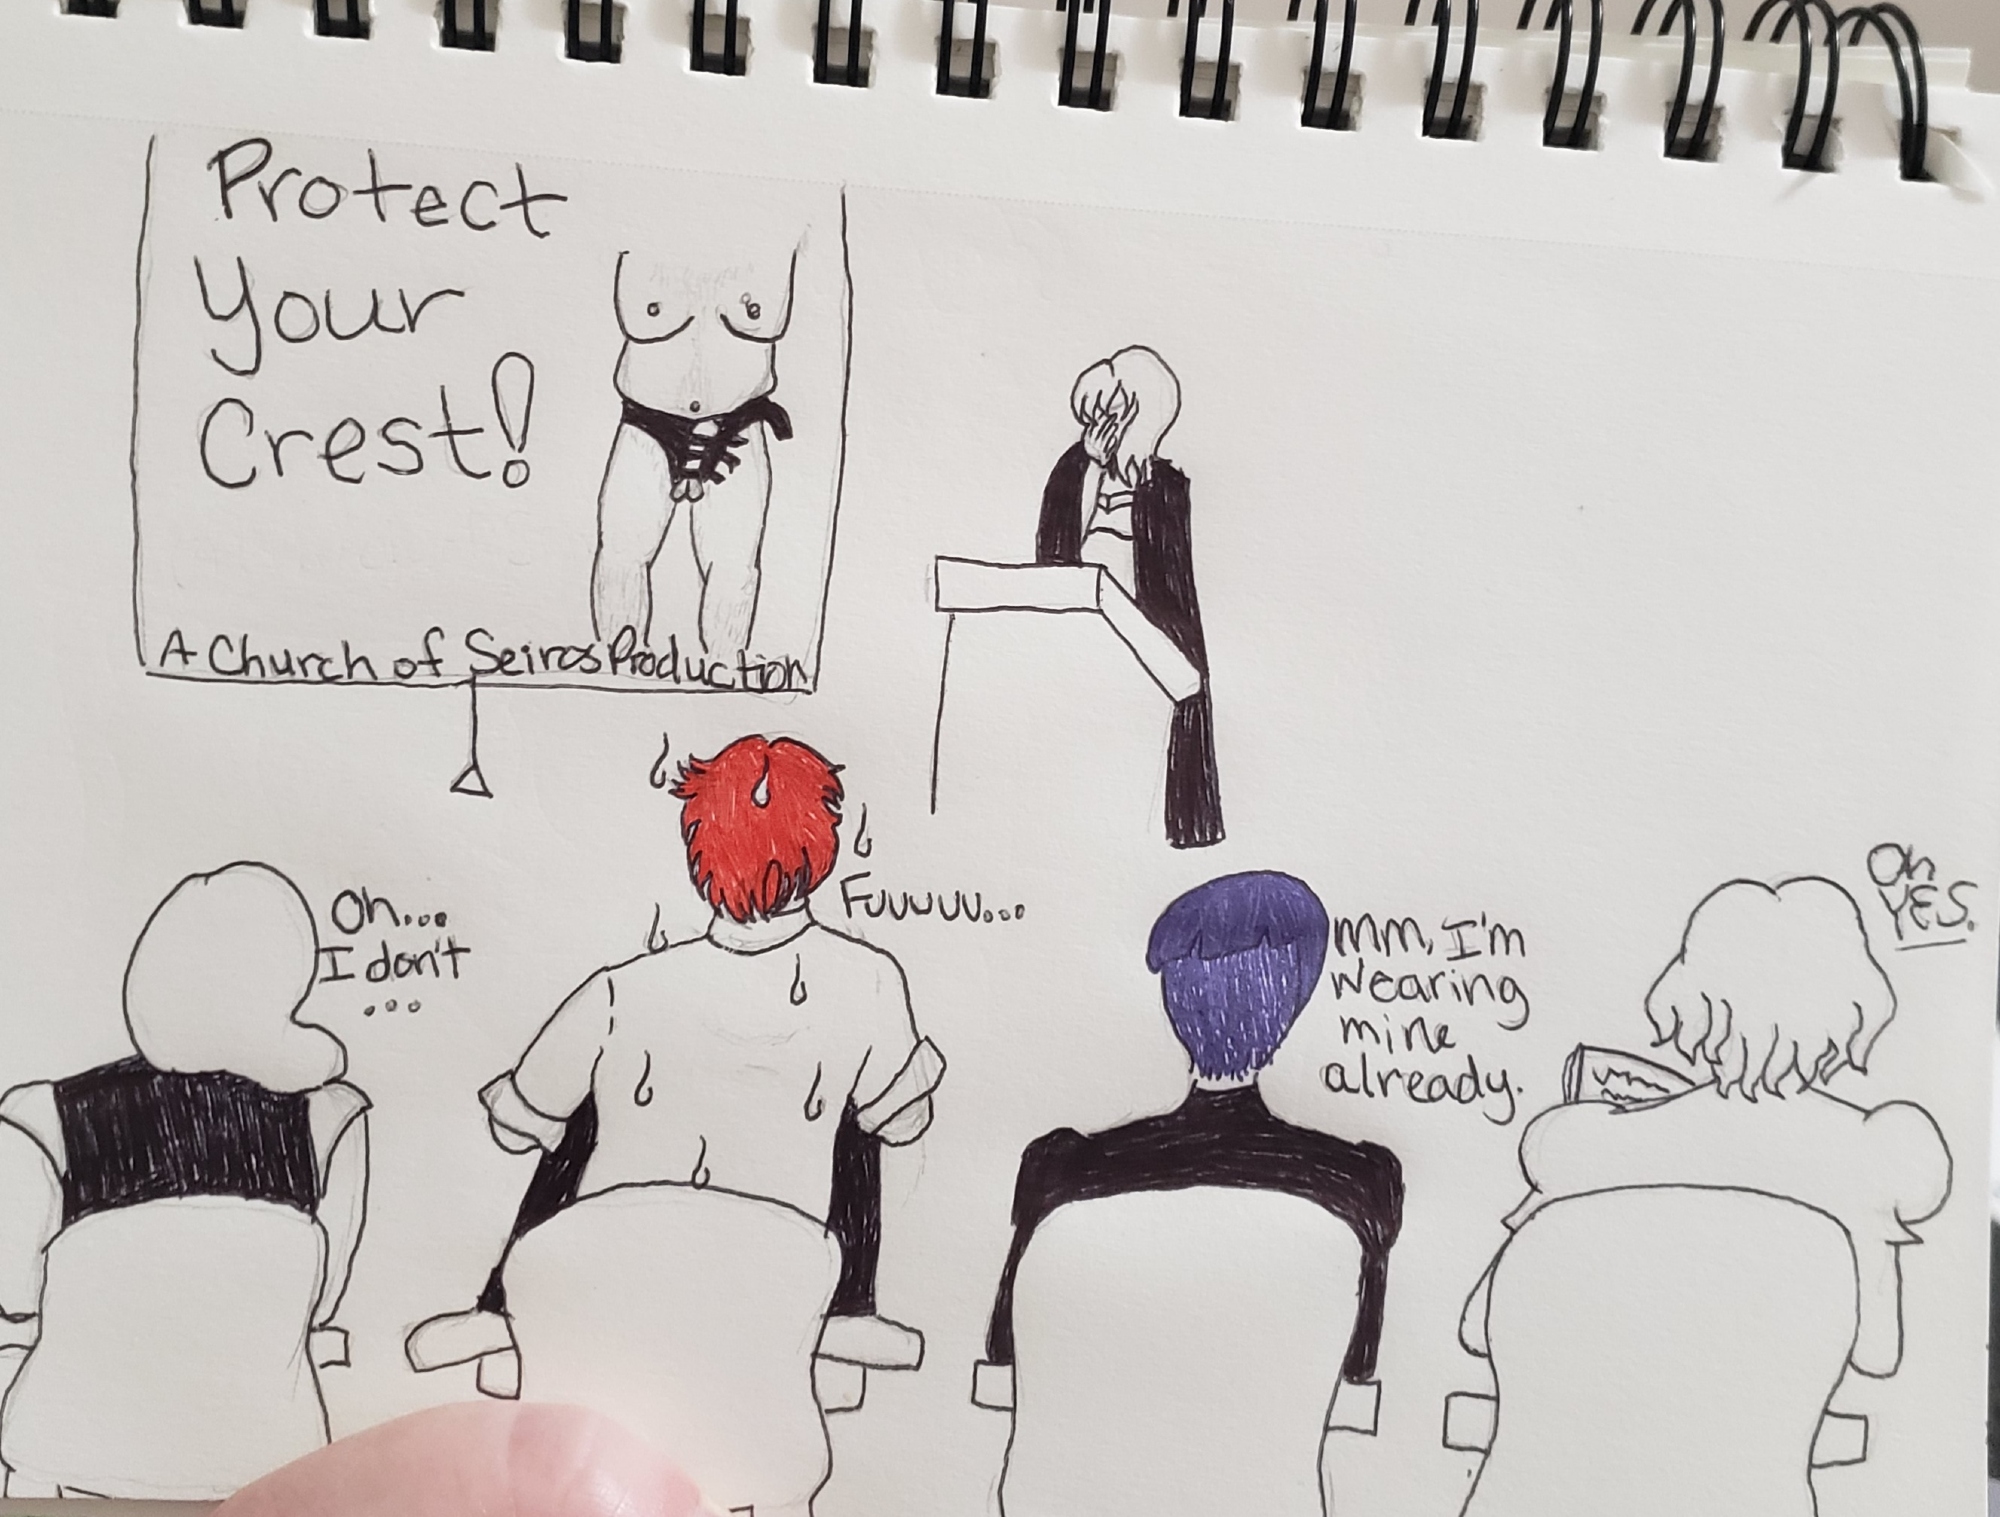 Protect
Your
Crest!
A Church of Seiros Production
Oh...
I don't
...
Fuuuuu...
mm, I'm
wearing
mine
already.
Oh
YES.